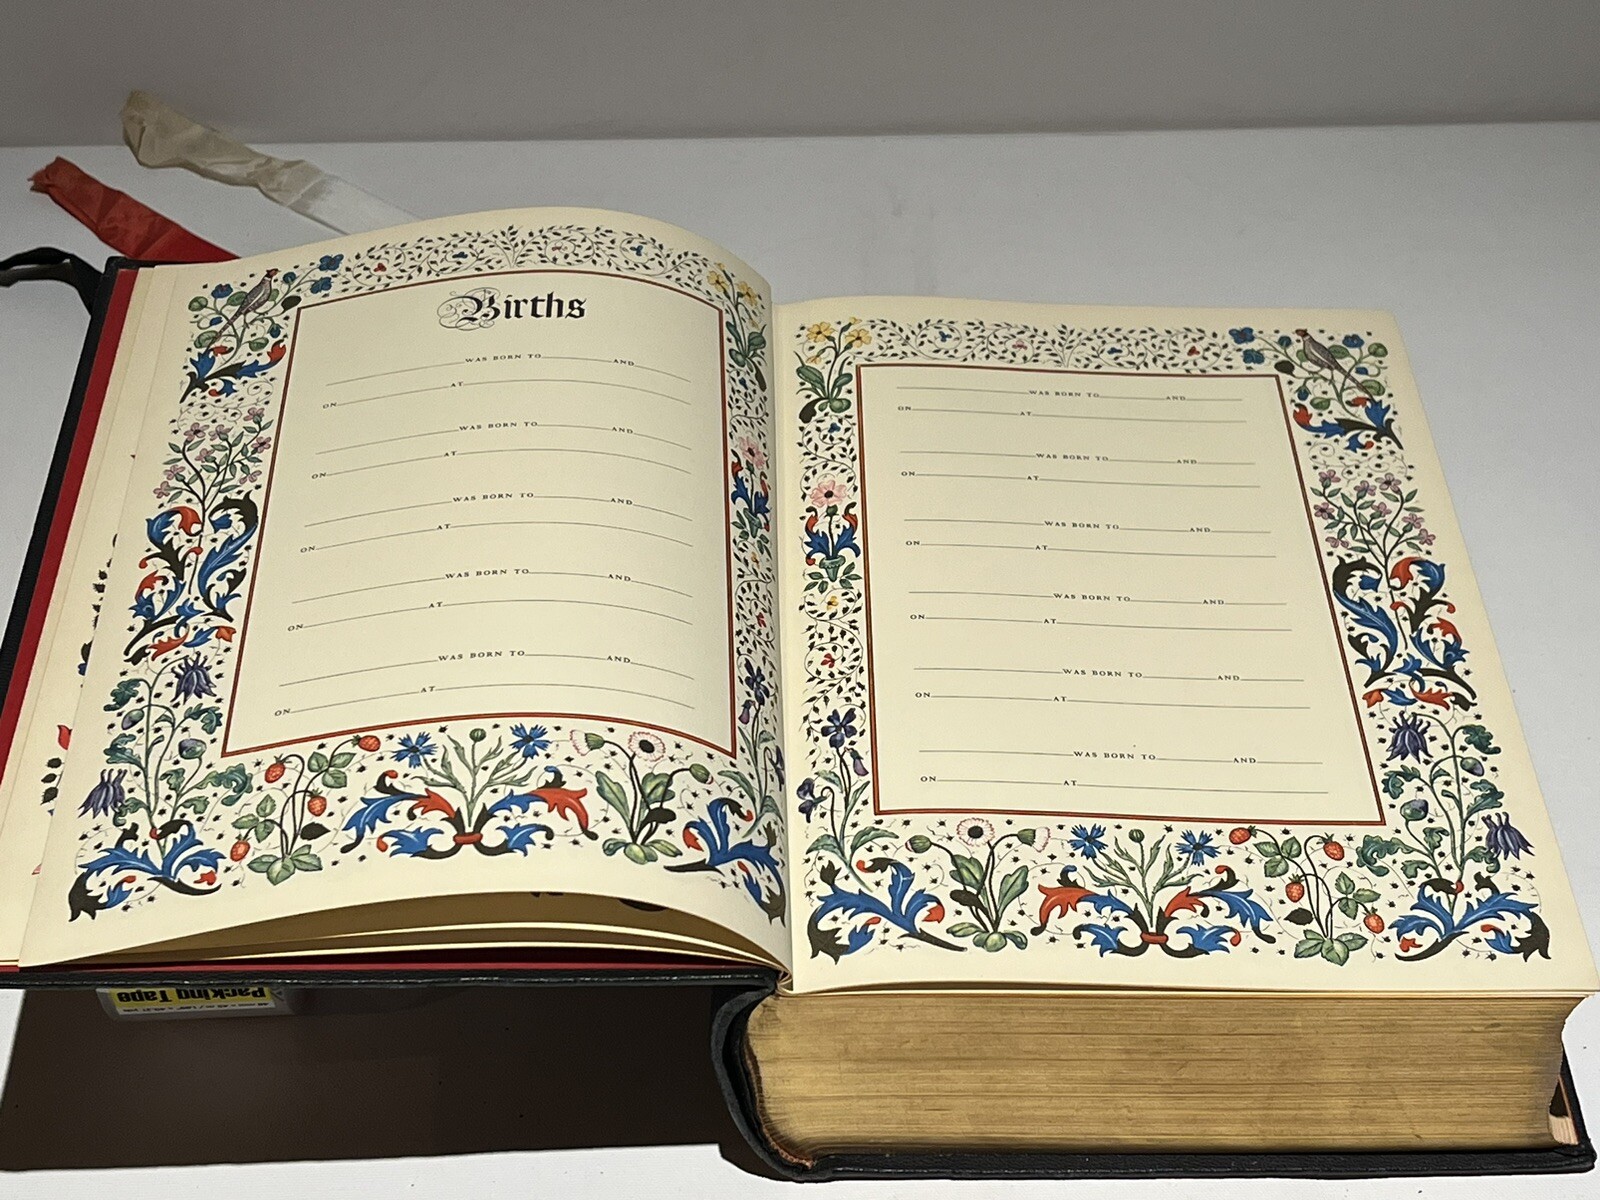 Births
WAS BORN TO AND
ON AT
WAS BORN TO AND
ON AT
WAS BORN TO AND
ON AT
WAS BORN TO AND
ON AT
WAS BORN TO AND
ON AT
WAS BORN TO AND
ON AT
WAS BORN TO AND
ON AT
WAS BORN TO AND
ON AT
WAS BORN TO AND
ON AT
WAS BORN TO AND
ON AT
WAS BORN TO AND
ON AT
Packing Tape